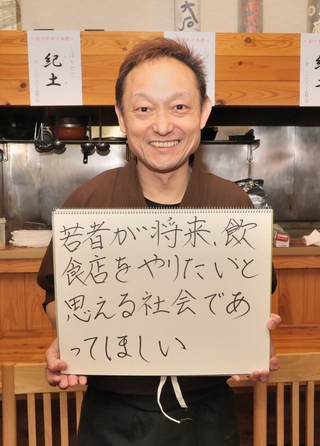 紀土
紀土
若者が将来、飲
食店をやりたいと
思える社会であ
ってほしい